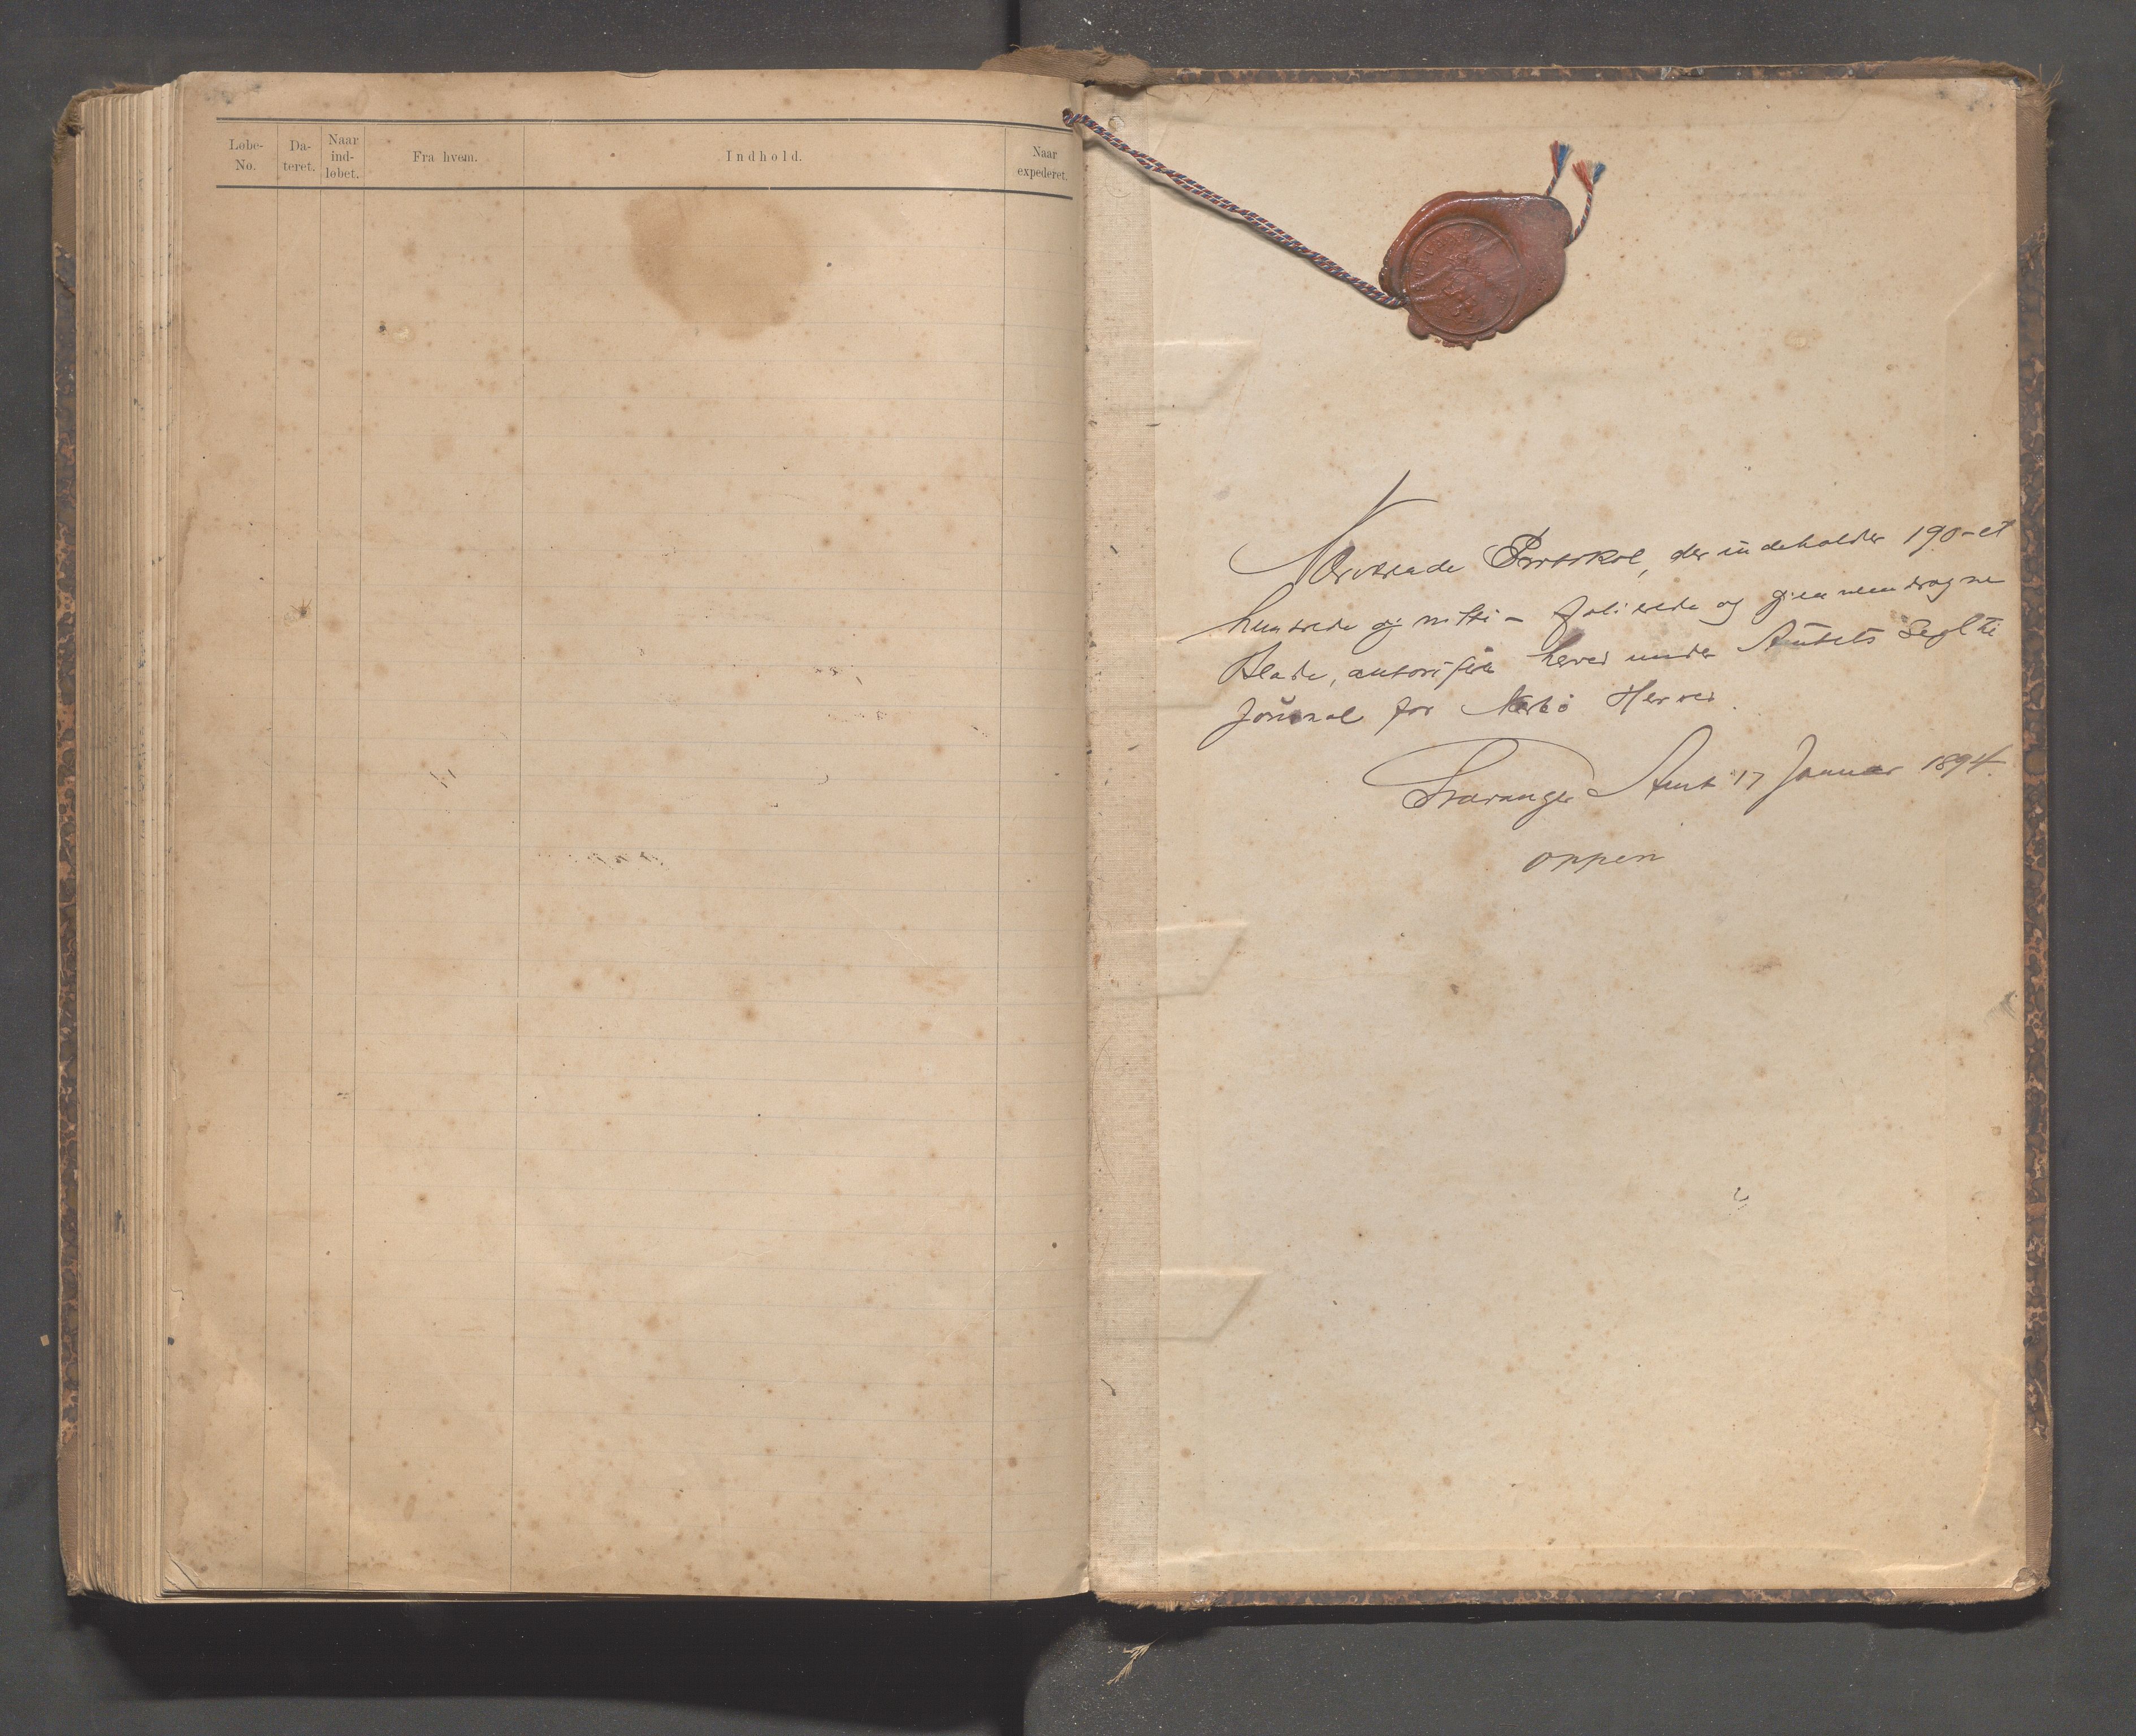 Løbe-
No.
Da-
teret.
Naar
ind-
løbet.
Fra hvem.
Indhold.
Naar
expederet.
Nærværende Protokol, der indeholder 190 - et
hundrede og nitti - folierede og gjennemdragne
Blade, autoriseres herved under Amtets Segl til
Journal for Nærbø Herred.
Stavanger Amt 17 Januar 1894.
Oppen